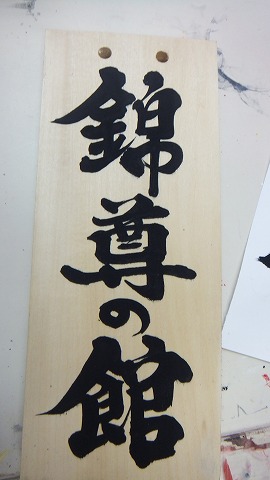 錦尊の館